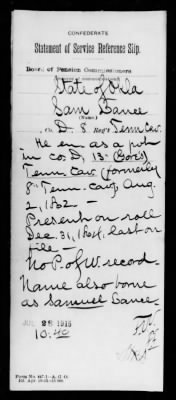 CONFEDERATE
Statement of Service Reference Slip.
Board of Pension Commissioners
State of Okla
Sam Dance
(Name.)
Co. D. 8 Reg't Tenn Cav.
He en. as a pvt
in co. D, 13" (Gore's)
Tenn. Cav (formerly
8" Tenn. cav), Aug.
2, 1862 –
Present on roll
Dec. 31, 1864, last on
file –
No P. of W. record.
Name also borne
as Samuel Dance.
JUL 28 1915
10:40
Form No. 447-1—A. G. O.